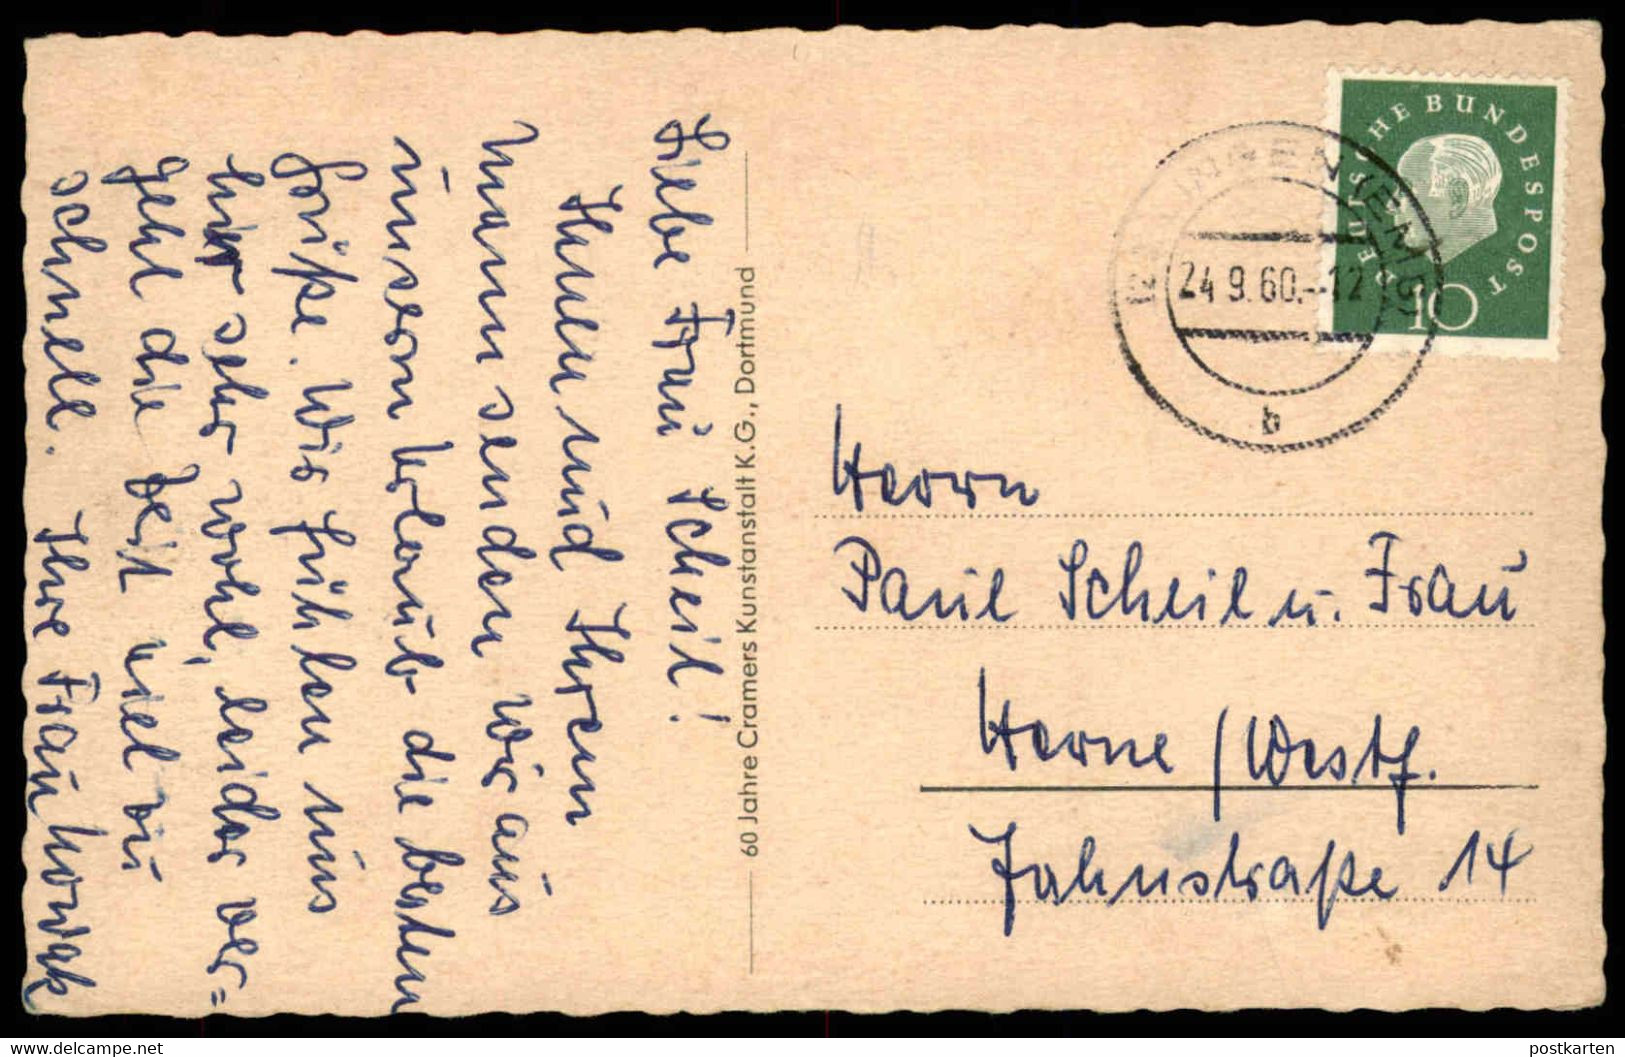 Liebe Frau Scheil!
Ihnen und Ihrem
Mann senden wir aus
unserm Urlaub die besten
Grüße. Wir fühlen uns
hier sehr wohl, leider ver=
geht die Zeit viel zu
schnell. Ihre Frau Nowak
60 Jahre Cramers Kunstanstalt K.G., Dortmund
DEUTSCHE BUNDESPOST
10
INGEN (EMS)
24.9.60.-12
b
Herrn
Paul Scheil u. Frau
Herne / Westf.
Jahnstraße 14
delcampe.net
postkarten